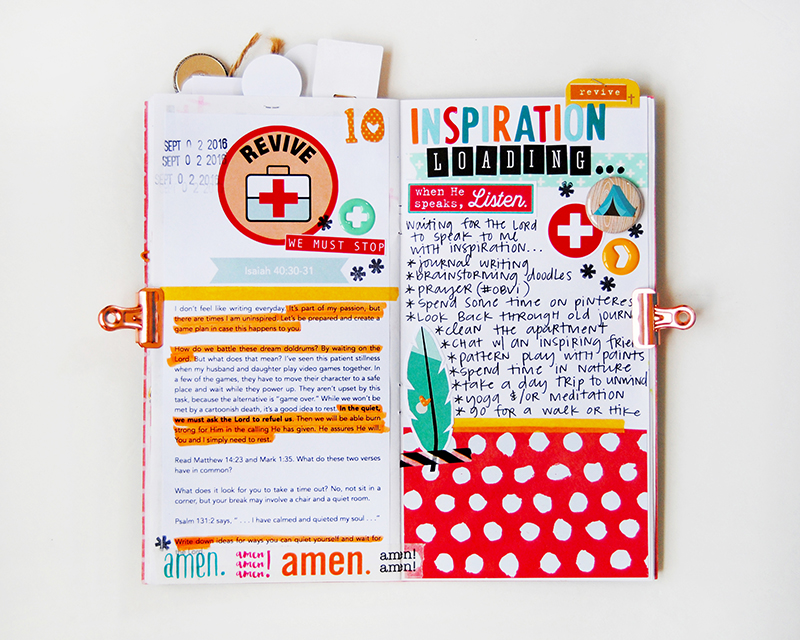 SEPT 0 2 2016
SEPT 0 2 2016
SEPT 0 2 2016
10
REVIVE
WE MUST STOP
Isaiah 40:30-31
I don't feel like writing everyday. It's part of my passion, but
there are times I am uninspired. Let's be prepared and create a
game plan in case this happens to you.
How do we battle these dream doldrums? By waiting on the
Lord. But what does that mean? I've seen this patient stillness
when my husband and daughter play video games together. In
a few of the games, they have to move their character to a safe
place and wait while they power up. They aren't upset by this
task, because the alternative is "game over." While we won't be
met by a cartoonish death, it's a good idea to rest. In the quiet,
we must ask the Lord to refuel us. Then we will be able burn
strong for Him in the calling He has given. He assures He will.
You and I simply need to rest.
Read Matthew 14:23 and Mark 1:35. What do these two verses
have in common?
What does it look for you to take a time out? No, not sit in a
corner, but your break may involve a chair and a quiet room.
Psalm 131:2 says, " . . . I have calmed and quieted my soul . . ."
Write down ideas for ways you can quiet yourself and wait for
amen.
amen
amen!
amen
amen.
amen!
amen!
revive
INSPIRATION
LOADING...
when He
speaks, Listen.
waiting for the Lord
to speak to me
with inspiration...
* journal writing
* brainstorming doodles
* prayer (#obvi)
* spend some time on pinteres
* Look back through old journ
* clean the apartment
* chat w/ an inspiring frien
* pattern play with paints
* spend time in nature
* take a day trip to unwind
* yoga &/or meditation
* go for a walk or hike